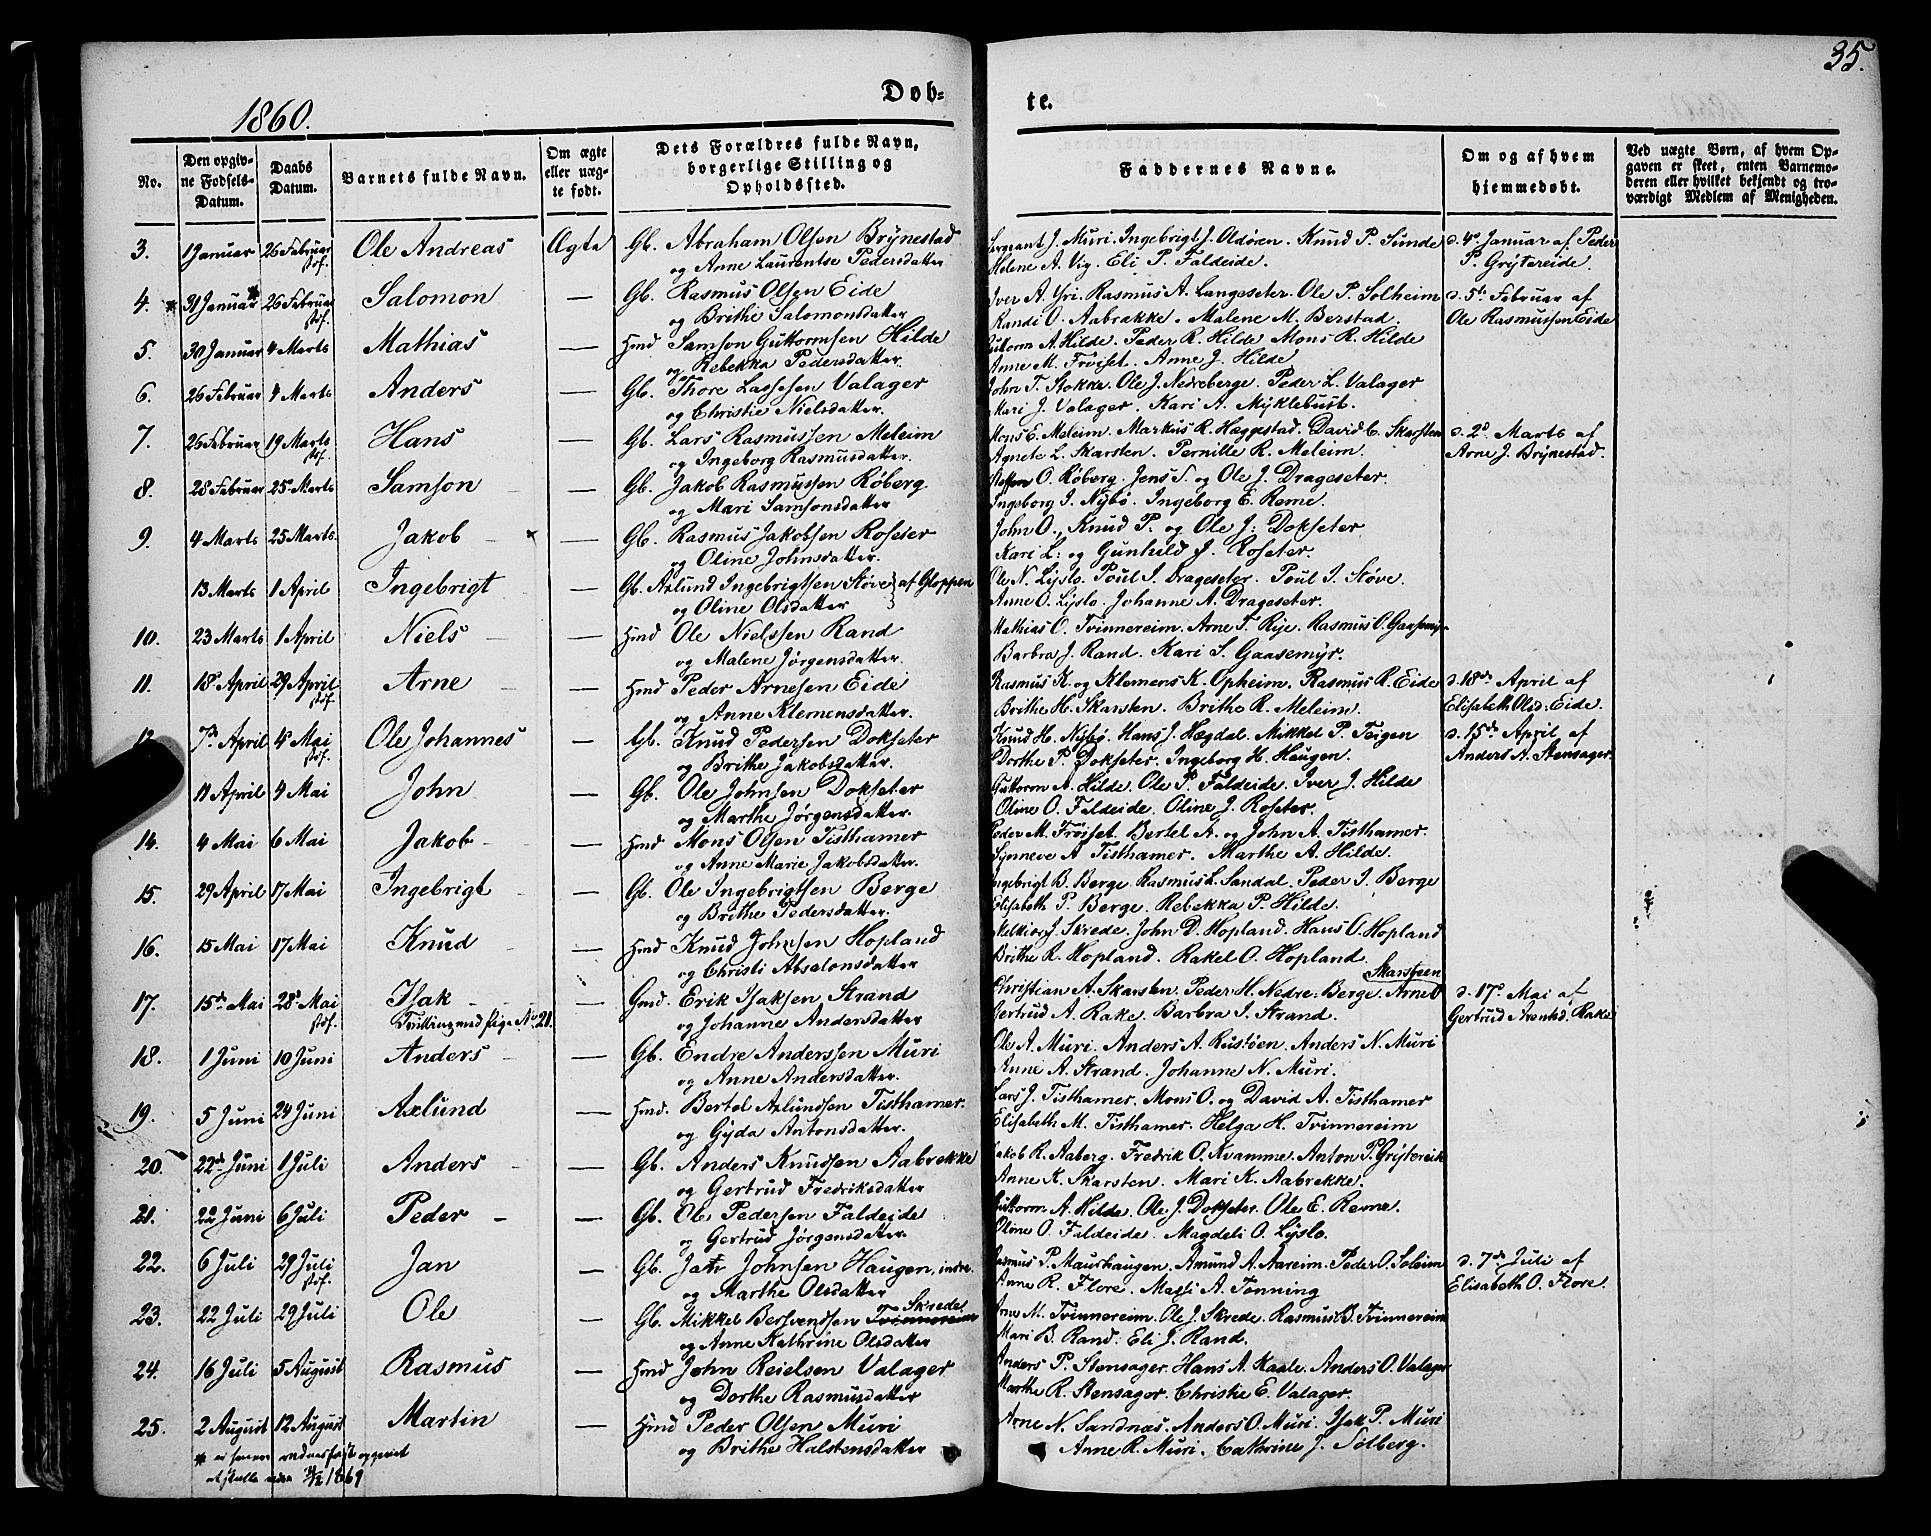 35.
1860.
Døb-
te.
No.
Den opgiv-
ne Fødsels-
Datum.
Daabs
Datum.
Barnets fulde Navn.
Om ægte
eller uæg-
te født.
Dets Forældres fulde Navn,
borgerlige Stilling og
Opholdssted.
Faddernes Navne.
Om og af hvem
hjemmedøbt.
Ved uægte Børn, af hvem Op-
gaven er skeet, enten Barnemo-
deren eller hvilket bekjendt og tro-
værdigt Medlem af Menigheden.
3. 1 Januar 26 Februar stf. Ole Andreas Ægte Gb. Abraham Olsen Brynestad Sergeant J. Muri. Ingebrigt J. Oldøren. Knud P. Sunde d. 4de Januar af Peder
og Anne Laurentse Pedersdatter Helene A. Vig. Eli P. Faldeide. P. Grytereide.
4. * 31 Januar * 26 Februar stf. Salomon — Gb. Rasmus Olsen Eide Iver A. Yri. Rasmus A. Langeseter. Ole P. Solheim d. 5te Februar af
og Brithe Salomonsdatter Randi O. Aabrække. Malene M. Berstad. Ole Rasmussen Eide
5. 30 Januar 4 Marts Mathias — Hmd Samson Guttormsen Hilde Guttorm A. Hilde. Peder R. Hilde Mons R. Hilde
og Rebekka Pedersdatter. Anne M. Frøiset. Anne J. Hilde
6. 26 Februar 4 Marts Anders — Gb. Thore Lassesen Valager John T. Stokke. Ole J. Nedreberge. Peder L. Valager
og Christie Nielsdatter. Mari J. Valager. Kari A. Myklebust.
7. 26 Februar 19 Marts stf. Hans — Gb. Lars Rasmussen Meleim Mons E. Meleim. Markus R. Hæggestad. David C. Skarsten d. 2d Marts af
og Ingeborg Rasmusdatter. Agnete L. Skarsten. Pernille R. Meleim. Arne J. Brynestad.
8. 28 Februar 25 Marts Samson — Gb. Jakob Rasmussen Røberg Steffen O. Røberg. Jens S. og Ole J. Drageseter.
og Mari Samsonsdatter Ingeborg I. Nybø. Ingeborg E. Reme.
9. 4 Marts 25 Marts. Jakob — Gb. Rasmus Jakobsen Roseter John O., Knud P. og Ole J: Dokseter
og Oline Johnsdatter. Kari L: og Gunhild J. Roseter.
13 Marts 1 April Ingebrigt — Gb. Axlund Ingebrigtsen Støve } af Gloppen Ole N. Lyslo. Poul I. Drageseter. Poul I. Støve.
og Oline Olsdatter Anne O. Lyslo. Johanne A. Drageseter.
10. 23 Marts 1 April Niels — Hmd Ole Nielssen Rand Mathias O. Tvinnereim. Arne T. Rye. Rasmus O. Gaasemyr
og Malene Jørgensdatter. Barbra J. Rand. Kari S. Gaasemyr.
11. 18 April 29 April stf. Arne — Hmd Peder Arnesen Eide Rasmus K. og Klemens K. Opheim. Rasmus R. Eide d. 18de April af
og Anne Klemensdatter. Brithe H. Skarsten. Brithe R. Meleim. Elisabeth Olsd. Eide.
12. 7de April 4 Mai stf. Ole Johannes — Gb. Knud Pedersen Dokseter Knud H. Nybø. Hans J. Hægdal. Mikkel P. Teigen d. 15de April af
og Brithe Jakobsdatter. Dorthe P. Dokseter. Ingeborg H. Haugen. Anders A. Stensager.
11 April 4 Mai John — Gb. Ole Johnsen Dokseter Guttorm A. Hilde. Ole P. Faldeide. Iver J. Hilde
og Marthe Jørgensdatter. Oline O. Faldeide. Oline J. Roseter.
14. 4 Mai 6 Mai Jakob — Hmd Mons Olsen Tisthamer Peder M. Frøiset. Bertel A. og John A. Tisthamer.
og Anne Marie Jakobsdatter. Synneve A Tisthamer. Marthe A. Hilde.
15. 29 April 17 Mai Ingebrigt — Gb. Ole Ingebrigtsen Berge Ingebrigt B. Berge. Rasmus L. Sandal. Peder I. Berge
og Brithe Pedersdatter. Elisabeth P. Berge. Rebekka P. Hilde.
16. 15 Mai 17 Mai Knud — Hmd Knud Johnsen Hopland Melkior J. Skrede. John D. Hopland. Hans O. Hopland
og Christi Absalonsdatter Brithe R. Hopland. Rakel O. Hopland.
Skarsteen
17. 15de Mai 28 Mai stf. Isak — Gmd. Erik Isaksen Strand Christian A. Skarsten. Peder H. Nedre-Berge. Arne B d. 17de Mai af
Tvilling med Pige No. 21. og Johanne Andersdatter Gertrud A. Rake. Barbra I. Strand. Gertrud Arentsd. Rake
18. 1 Juni 10 Juni Anders — Gb. Endre Anderssen Muri Ole A. Muri. Anders A. Rustøen. Anders N. Muri
og Anne Andersdatter. Anne A. Strand. Johanne N. Muri.
19. 5 Juni 24 Juni Axlund — Hmd. Bertel Axlundsen Tisthamer. Lars J. Tisthamer. Mons O. og David A. Tisthamer
og Gyda Antonsdatter. Elisabeth M. Tisthamer. Helga H. Tvinnereim
20. 22de Juni 1 Juli Anders — Gb. Anders Knudsen Aabrekke Jakob R. Aaberg. Fredrik O. Kvamme. Anton P. Grytereide
og Gertrud Fredriksdatter Anne K. Skarsten. Mari K. Aabrekke.
21. 22 Juni 6 Juli Peder — Gb. Ole Pedersen Faldeide Guttorm A. Hilde. Ole J. Dokseter. Ole E. Reme.
og Gertrud Jørgensdatter. Oline O. Faldeide. Magdeli O. Lyslo.
22. 6 Juli 29 Juli stf. Jan — Gb. Johnsen Haugen, indre. Rasmus P. Maurhaugen. Amund A. Aareim. Peder O. Soleim d. 7de Juli af
og Marthe Olsdatter Anne R. Flore. Massi A. Tonning Elisabeth O. Flore.
23. 22 Juli 29 Juli Ole — Gb. Mikkel Bersvendsen Tvinnereim Skrede Arne M. Tvinnereim. Ole J. Skrede. Rasmus B. Tvinnereim
og Anne Kathrine Olsdatter Mari B. Rand. Eli J. Rand.
24. 16 Juli 5 August Rasmus — Hmd John Reielsen Valager Anders P. Stensager. Hans A. Kaale. Anders O. Valager
og Dorthe Rasmusdatter Marthe R. Stensager. Christie E. Valager.
25. 2 August 12 August Martin — Hmd Peder Olsen Muri Arne N. Sandnæs. Anders O. Muri. Isak P. Muri
og Brithe Halstensdatter Anne R. Muri. Cathrine J. Solberg.
* er senere opgivet
at skulle være 1869